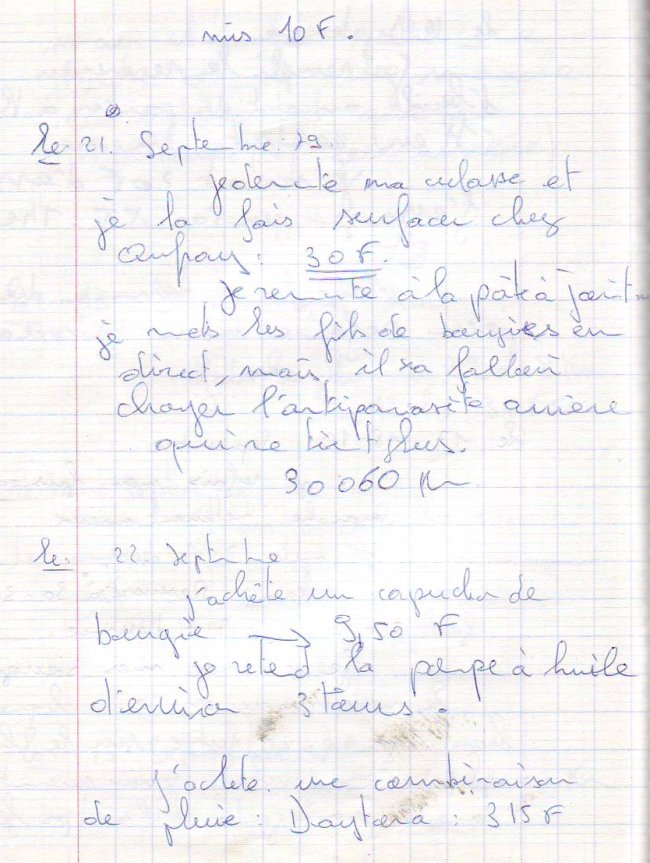 mis 10 F.
le 21. Septembre 79.
je demonte ma culasse et
je la fais surfacer chez
30 F.
je remonte à la pâte à joint
je mets les fils de bougies en
direct, mais il va falloir
changer l'antiparasite arrière
qui ne tient plus.
30 060 Km
le. 22 septembre
j'achète un capuchon de
bougie → 9,50 F
je retend la pompe à huile
d'environ 3 tours.
j'achete une combinaison
de pluie : Daytona : 315 F